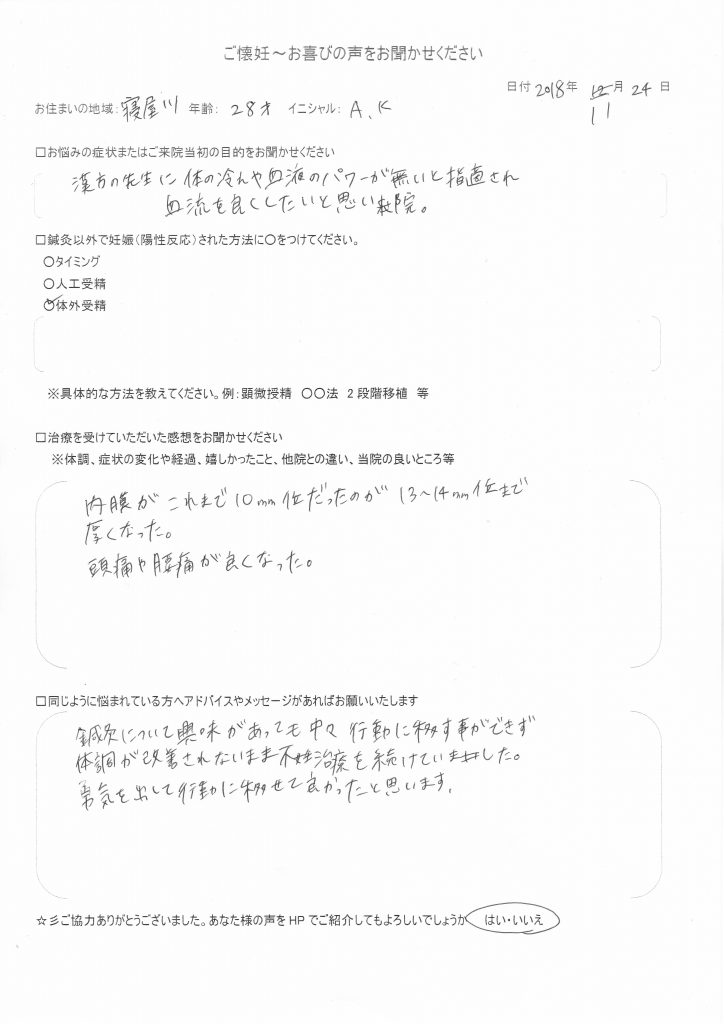 ご懐妊～お喜びの声をお聞かせください
日付 2018年 12月 24日
11
お住まいの地域：寝屋川 年齢： 28才 イニシャル： A.K
□お悩みの症状またはご来院当初の目的をお聞かせください
漢方の先生に 体の冷えや血液のパワーが無いと指適され
血流を良くしたいと思い来院。
□鍼灸以外で妊娠（陽性反応）された方法に○をつけてください。
○タイミング
○人工受精
○体外受精
※具体的な方法を教えてください。例：顕微授精 ○○法 2段階移植 等
□治療を受けていただいた感想をお聞かせください
※体調、症状の変化や経過、嬉しかったこと、他院との違い、当院の良いところ等
内膜が これまで10mm位だったのが 13～14mm位まで
厚くなった。
頭痛や腰痛が良くなった。
□同じように悩まれている方へアドバイスやメッセージがあればお願いいたします
鍼灸について興味があっても中々 行動に移す事ができず
体調が改善されないまま不妊治療を続けていました。
勇気を出して行動に移せて良かったと思います。
☆彡ご協力ありがとうございました。あなた様の声をHPでご紹介してもよろしいでしょうか はい・いいえ